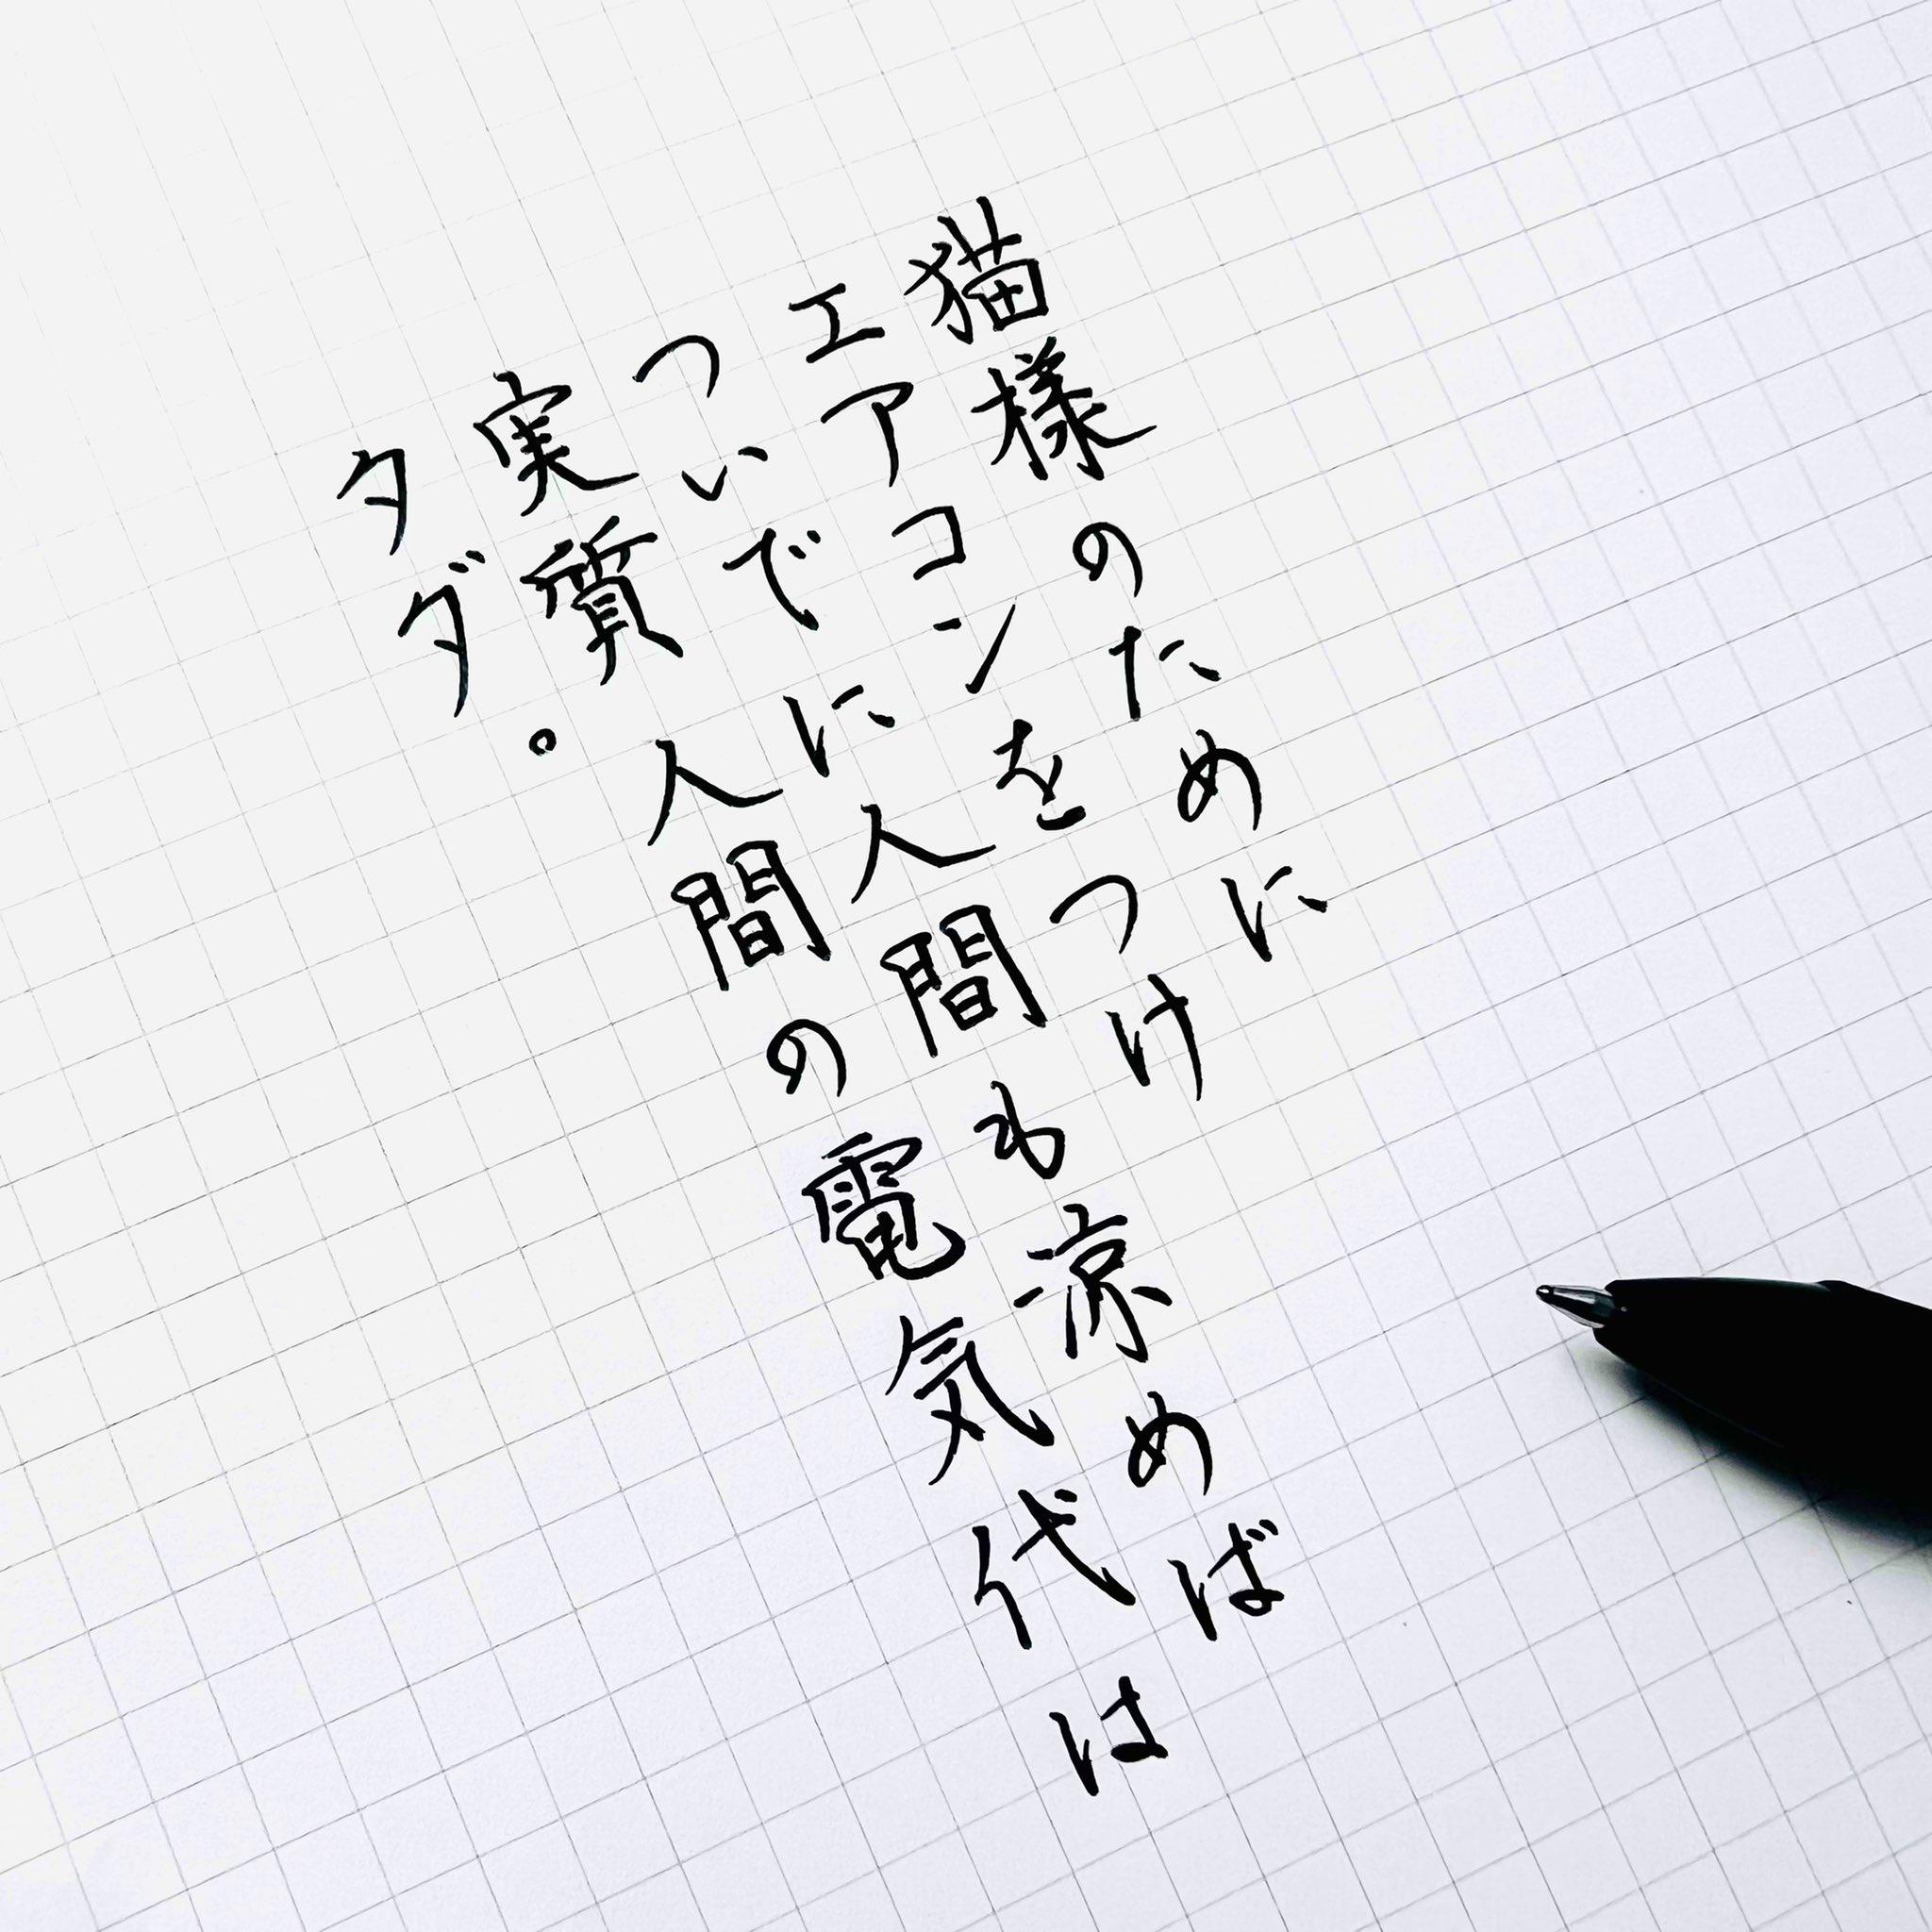 猫様のために
エアコンをつけ
ついでに人間も涼めば
実質人間の電気代は
タダ。